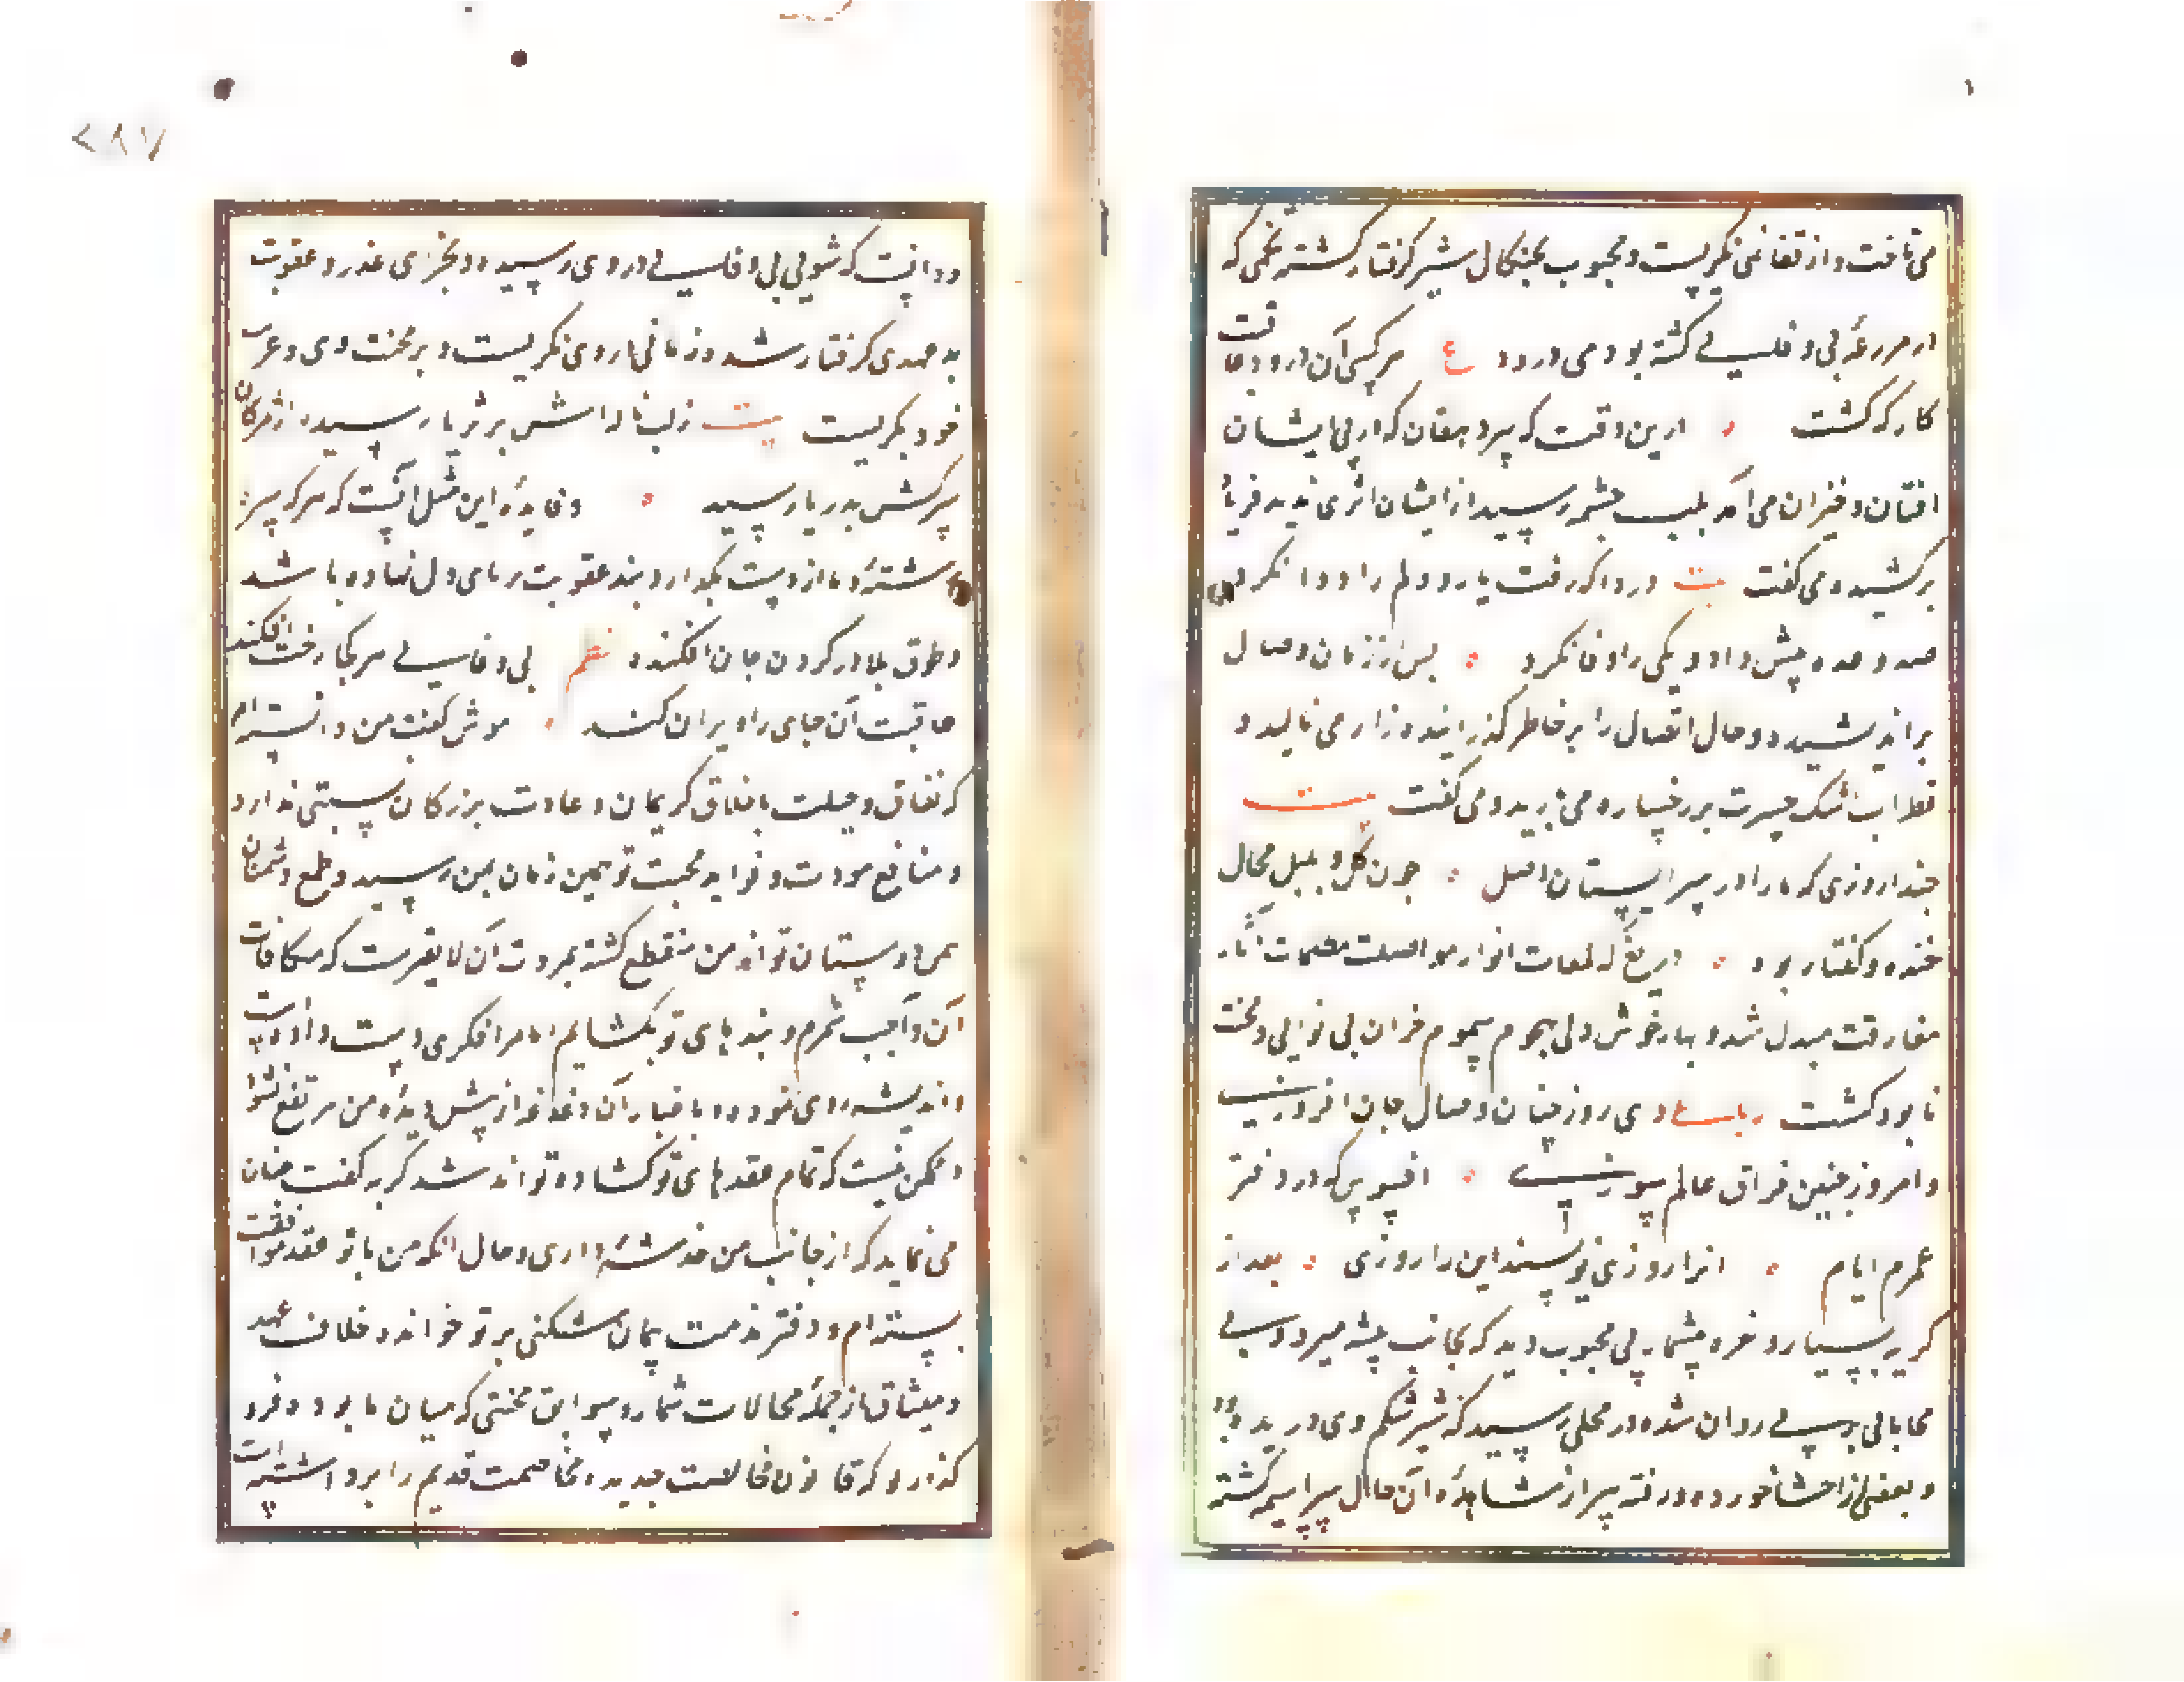 می تافت و از قفا نمی نگریست و محبوب بچنگال شیر گرفتار گشته تخمی که
از مزرعهٔ بی وفایی کشته بود می درود ع هر کسی آن درود عاقبت
کار که کشت ازین وقت که پیر دهقان که از پی ایشان
افتان و خیزان می آمد بلب چشمه رسید از ایشان اثری ندید فریاد
برکشید و می گفت بیت دردا که رفت یار و دلم را دوا نکرد
صد وعده پیش داد و یکی را وفا نکرد پس از زمان وصال
براندیشید و حال اتصال را بر خاطر گذرانیده زار می نالید و
قطرات اشک حسرت بر رخساره می بارید و می گفت بیت
حبذا روزی که ما را در سرابستان وصل چون گل و بلبل مجال
خنده و گفتار بود دریغ که لمعات انوار مواصلت بظلمات آثار
مفارقت مبدل شد و بهار خوش دلی بهجوم سموم خزان بی نوایی و محنت
نابود گشت رباعی دی روز چنان وصال جان افروزی
و امروز چنین فراق عالم سوزی افسوس که در دفتر
عمرم ایام آنرا روزی نویسد این را روزی بعد از
گریه بسیار و نعره بیشمار پی محبوب دید که بجانب بیشه میرود بی
محابا بی بر پی روان شده در محلی رسید که شیر شکم وی دریده بود
و بعضی از احشا خورده و رفته پیر از مشاهدهٔ آن حال سراسیمه گشته
۲۸۷
و دانست که شومی بی وفایی در وی رسیده و بجزای غدر و عقوبت
بد عهدی گرفتار شد و زمانی در وی نگریست و بر محنت وی و غربت
خود بگریست بیت ز لب ناله اش بر ثریا رسید ز مژگان
سرشکش بدریا رسید و فایدهٔ این مثل آنست که هر که سر
رشتهٔ وفا از دست بگذارد بند عقوبت بر پای دل نهاده باشد
و طوق بلا در گردن جان افکنده نظم بی وفایی هر کجا رخت افکند
عاقبت آن جای را ویران کند موش گفت من دانسته ام
که نفاق و حیلت باخلاق کریمان و عادت بزرگان نسبتی ندارد
و منافع مودت و فواید محبت تو همین زمان بمن رسید و طمع دشمنان
بمن از دوستان تو از من منقطع گشته بمروت آن لایق ترست که مکافات
آن واجب شمرم و بندهای تو بگشایم اما مرا فکری دست داده است
و اندیشه روی نموده و تا غبار آن دغدغه از پیش دیدهٔ من مرتفع نشود
ممکن نیست که تمام عقدهای تو گشاده تواند شد گربه گفت چنان
می نماید که از جانب من خدشهٔ داری و حال آنکه من با تو عقد موافقت
بسته ام و دفتر مذمت پیمان شکنی بر تو خوانده خلاف عهد
و میثاق از جمله محالات شمار و سوابق محنتی که میان ما بوده فرو
گذار و که قانون مخالصت جدید مخاصمت قدیم را برداشته است